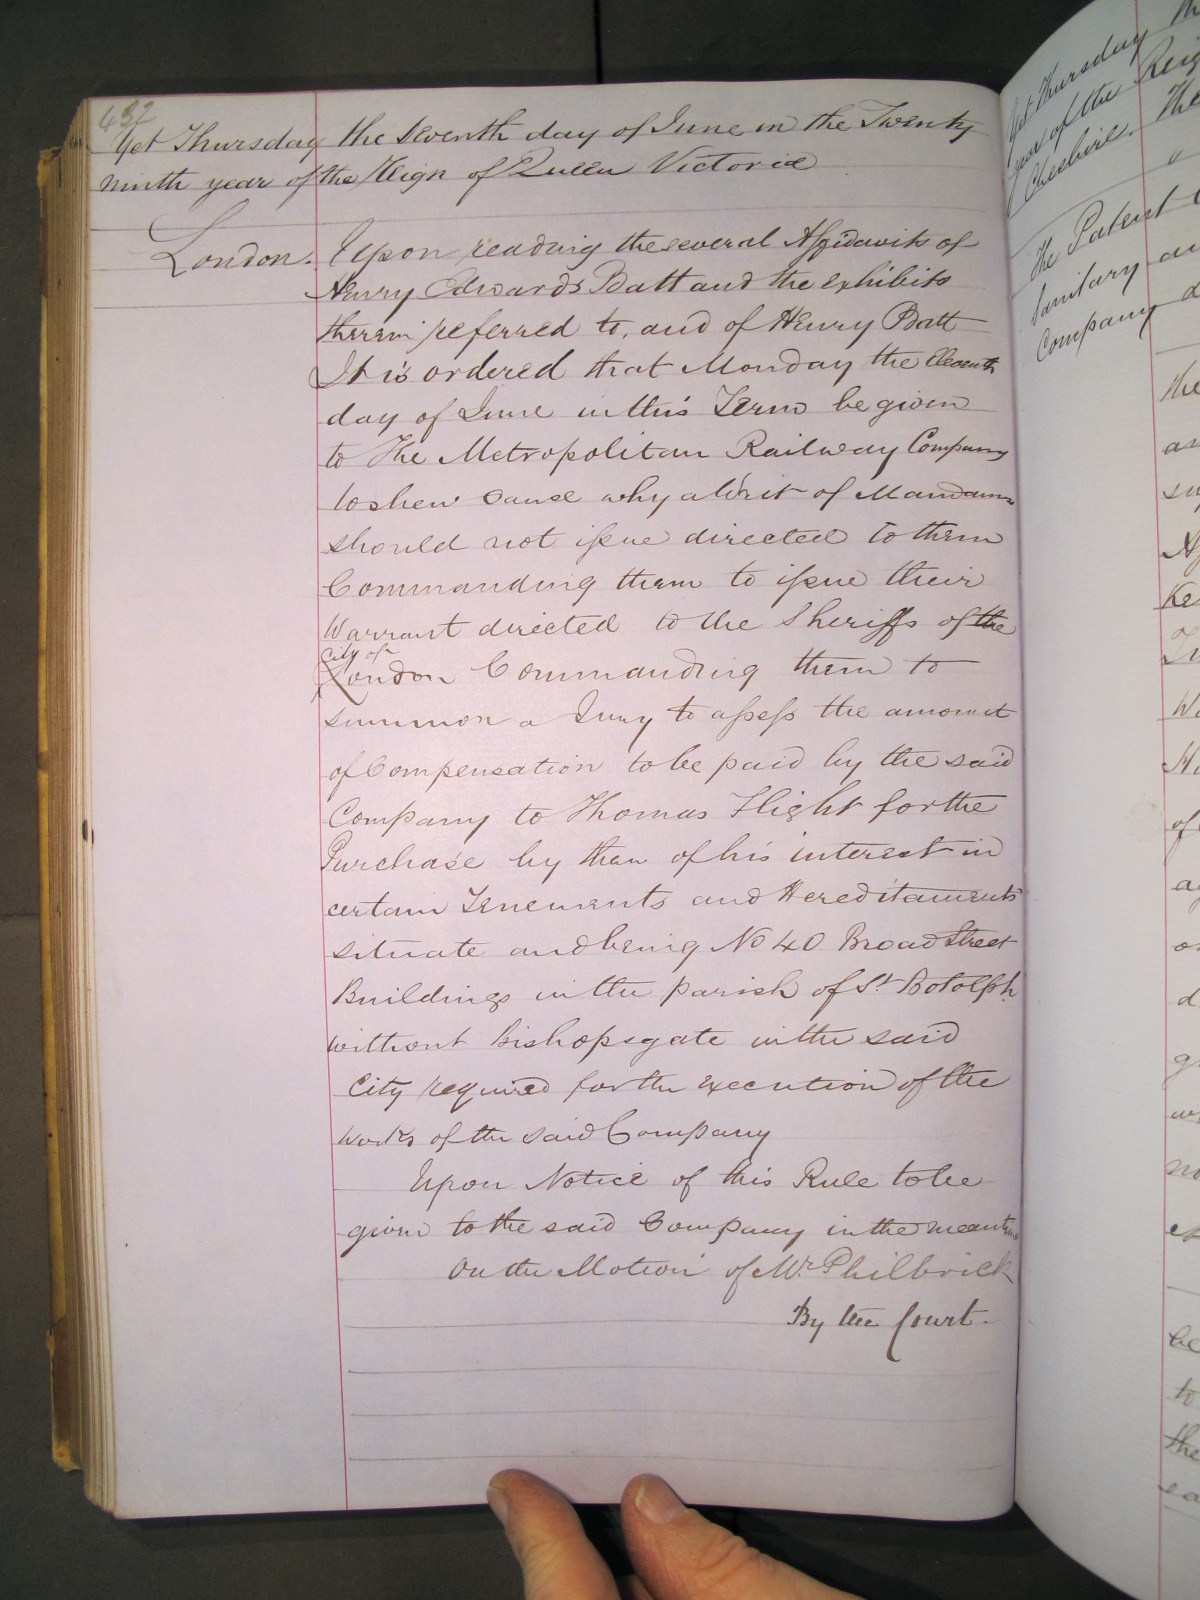 432
Yet Thursday the Seventh day of June in the Twenty
ninth year of the Reign of Queen Victoria
London. Upon reading the several Affidavits of
Henry Edwards Batt and the exhibits
therein referred to, and of Henry Batt
It is ordered that Monday the Eleventh
day of June in this Term be given
to The Metropolitan Railway Company
to shew cause why a Writ of Mandamus
should not issue directed to them
Commanding them to issue their
Warrant directed to the Sheriffs of the
City of
London Commanding them to
summon a Jury to assess the amount
of Compensation to be paid by the said
Company to Thomas Flight for the
Purchase by them of his interest in
certain Tenements and Hereditaments
situate and being No 40 Broad Street
Buildings in the parish of St. Botolph
without Bishopsgate in the said
City required for the execution of the
works of the said Company
Upon Notice of this Rule to be
given to the said Company in the meantime
On the Motion of Mr. Philbrick
By the Court.
Yet Thursday the
year of the Reig
Cheshire. The
The Patent
Sanitary an
Company d
the
an
su
Ke
of
or
d
no
be
to
the